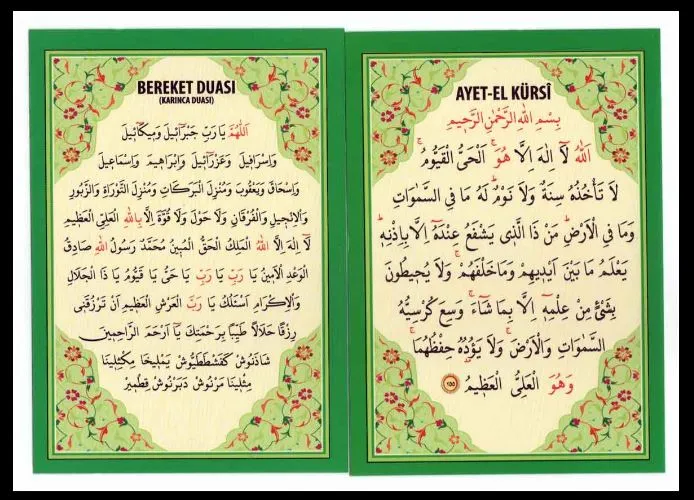 BEREKET DUASI
(KARINCA DUASI)
اَللّٰهُمَّ يَا رَبِّ جَبْرَٓائِيلَ وَمِيكَٓائِيلَ
وَاِسْرَافِيلَ وَعَزْرَٓائِيلَ وَاِبْرَاهِيمَ وَاِسْمَاعِيلَ
وَاِسْحَاقَ وَيَعْقُوبَ وَمُنْزِلَ الْبَرَكَاتِ وَمُنْزِلَ التَّوْرَاةِ وَالزَّبُورِ
وَالْاِنْجِيلِ وَالْفُرْقَانِ وَلَا حَوْلَ وَلَا قُوَّةَ اِلَّا بِاللّٰهِ الْعَلِيِّ الْعَظِيمِ
لَٓا اِلٰهَ اِلَّا اللّٰهُ الْمَلِكُ الْحَقُّ الْمُبِينُ مُحَمَّدٌ رَسُولُ اللّٰهِ صَادِقُ
الْوَعْدِ الْاَمِينُ يَا رَبِّ يَا رَبِّ يَا حَيُّ يَا قَيُّومُ يَا ذَا الْجَلَالِ
وَالْاِكْرَامِ اَسْئَلُكَ يَا رَبَّ الْعَرْشِ الْعَظِيمِ اَنْ تَرْزُقَنِى
رِزْقًا حَلَالًا طَيِّبًا بِرَحْمَتِكَ يَٓا اَرْحَمَ الرَّاحِمِينَ
شَاذَنُوشْ كَفَشْطَطَيُّوشْ يَمْلِيخَا مَكْثَلِينَا
مِثْلِينَا مَرْنُوشْ دَبَرْنُوشْ قِطْمِيرْ
AYET-EL KÜRSÎ
بِسْمِ اللّٰهِ الرَّحْمٰنِ الرَّحِيمِ
اَللّٰهُ لَٓا اِلٰهَ اِلَّا هُوَۚ اَلْحَيُّ الْقَيُّومُۚ
لَا تَأْخُذُهُ سِنَةٌ وَلَا نَوْمٌۜ لَهُ مَا فِى السَّمٰوَاتِ
وَمَا فِى الْاَرْضِۜ مَنْ ذَا الَّذِى يَشْفَعُ عِنْدَهُٓ اِلَّا بِاِذْنِهِۜ
يَعْلَمُ مَا بَيْنَ اَيْدِيهِمْ وَمَا خَلْفَهُمْۚ وَلَا يُحِيطُونَ
بِشَىْءٍ مِنْ عِلْمِهِٓ اِلَّا بِمَا شَٓاءَۚ وَسِعَ كُرْسِيُّهُ
السَّمٰوَاتِ وَالْاَرْضَۚ وَلَا يَؤُ۫دُهُ حِفْظُهُمَاۚ
وَهُوَ الْعَلِىُّ الْعَظِيمُ ٢٥٥